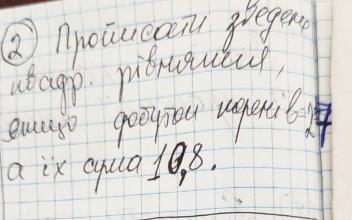 ② Прописати зведене
квадр. рівняння,
якщо добуток коренів=27
а їх сума 10,8.